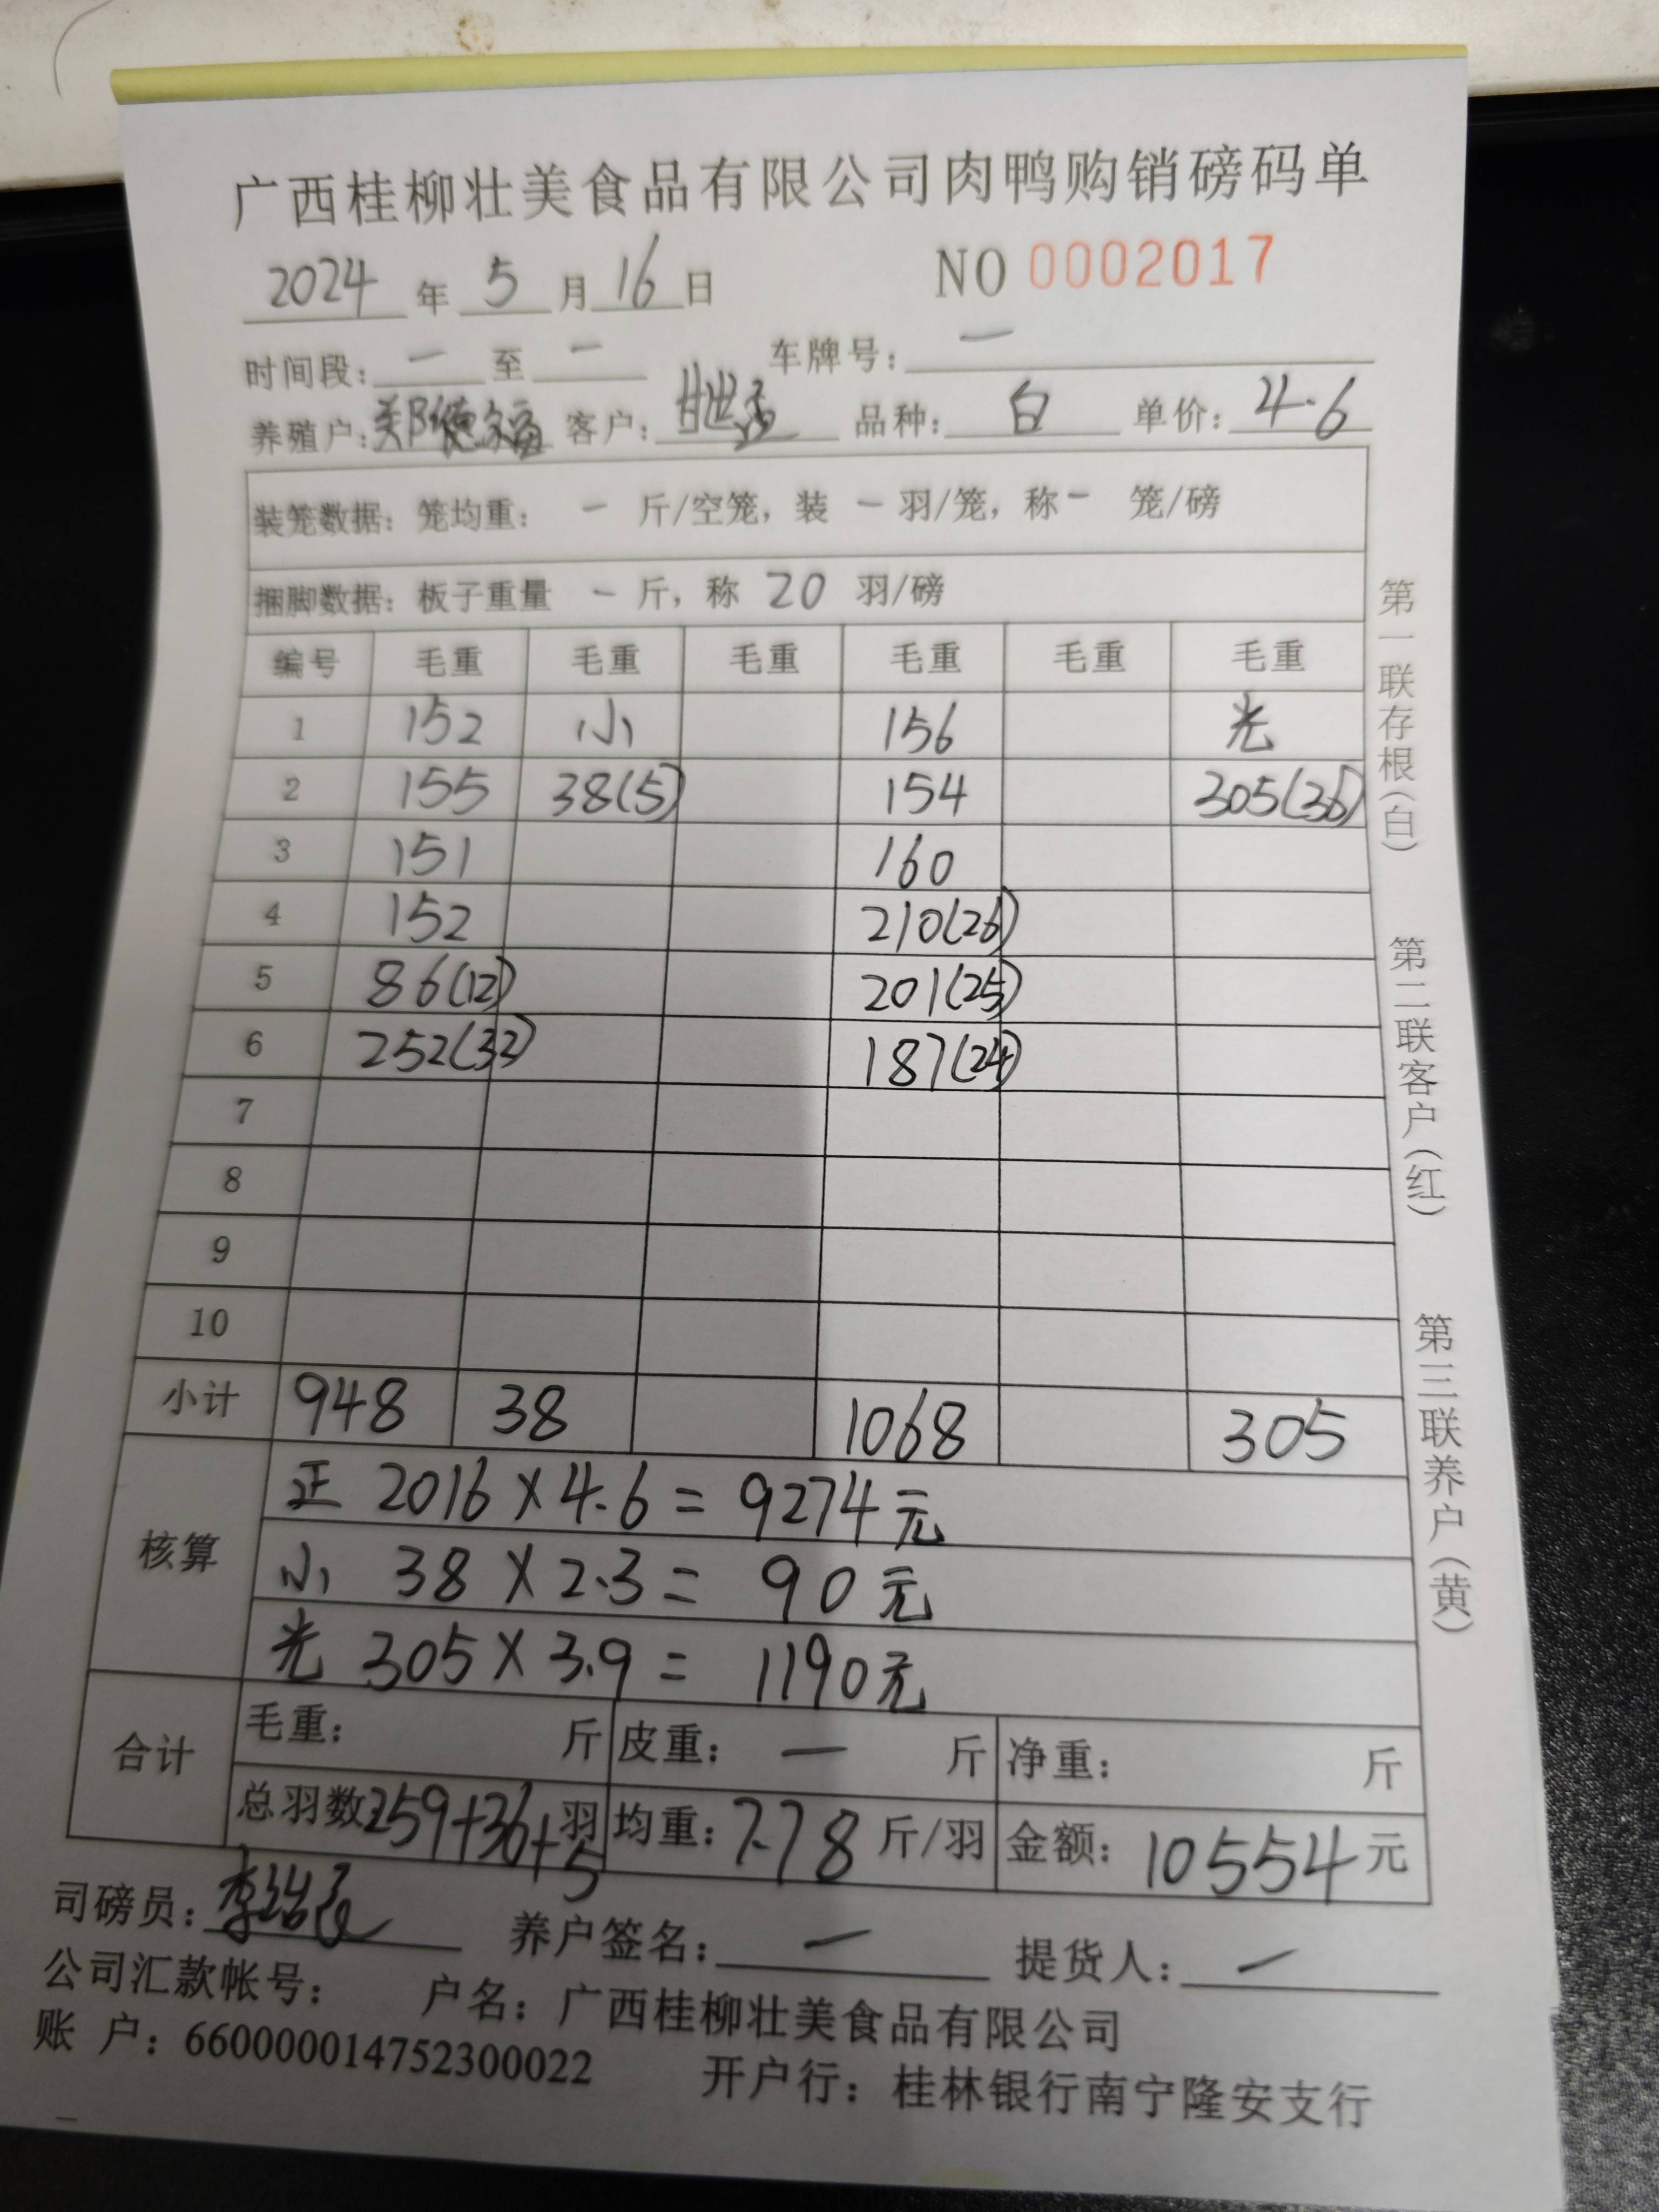 广西桂柳壮美食品有限公司肉鸭购销磅码单
2024 年 5 月 16 日 NO 0002017
时间段: 一 至 一 车牌号: 一
养殖户: 郑德福 客户: 品种: 白 单价: 4.6
装笼数据: 笼均重: 一 斤/空笼, 装 一 羽/笼, 称 一 笼/磅
捆脚数据: 板子重量 一 斤, 称 20 羽/磅
编号 毛重 毛重 毛重 毛重 毛重 毛重
1 152 小 156 光
2 155 38(5) 154 305(36)
3 151 160
4 152 210(26)
5 86(12) 201(25)
6 252(32) 187(24)
7
8
9
10
小计 948 38 1068 305
核算 正 2016×4.6=9274元
小 38×2.3=90元
光 305×3.9=1190元
合计 毛重: 斤 皮重: 一 斤 净重: 斤
总羽数: 259+36+5 羽 均重: 7.78 斤/羽 金额: 10554 元
司磅员: 养户签名: 一 提货人: 一
公司汇款帐号: 户名: 广西桂柳壮美食品有限公司
账 户: 660000014752300022 开户行: 桂林银行南宁隆安支行
第一联存根(白) 第二联客户(红) 第三联养户(黄)